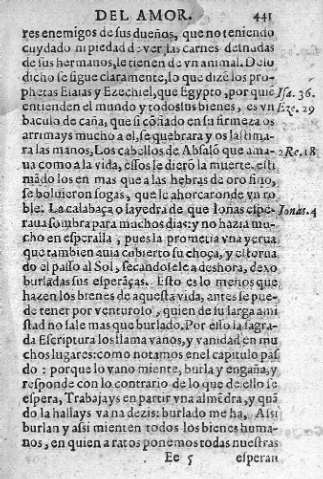 DEL AMOR. 441
res enemigos de sus dueños, que no teniendo
cuydado ni piedad de ver las carnes desnudas
de sus hermanos, le tienen de vn animal. De lo
dicho se sigue claramente, lo que dize los pro-
phetas Esaias y Ezechiel, que Egypto, por quiẽ Isa. 36.
entienden el mundo y todos sus bienes, es vn Eze. 29
baculo de caña, que si cõfiado en su firmeza os
arrimays mucho a el, se quebrara y os lastima-
ra las manos, Los cabellos de Absalõ que ama- 2 Re. 18
ua como a la vida, essos le dierõ la muerte. esti
mãdo los en mas que a las hebras de oro fino,
se boluieron sogas, que le ahorcaron de vn ro
ble. La calabaça o layedra de que Ionas espe- Ionas. 4
raua sombra para muchos dias: y no hazia mu-
cho en esperalla, pues la prometia vna yerua
que tambien auia cubierto su choça, y estorua
do el passo al Sol, secandosele a deshora, dexo
burladas sus esperãças. Esto es lo menos que
hazen los bienes de aquesta vida, antes se pue-
de tener por venturoso, quien de su larga ami
stad no sale mas que burlado. Por esso la sagra-
da Escriptura los llama vanos, y vanidad en mu
chos lugares: como notamos en el capitulo pas
do: porque lo vano miente, burla y engaña, y
responde con lo contrario de lo que de ello se
espera, Trabajays en partir vna almẽdra, y quã
do la hallays vana dezis: burlado me ha, Assi
burlan y assi mienten todos los bienes huma-
nos, en quien a ratos ponemos todas nuestras
Ee 5 esperan